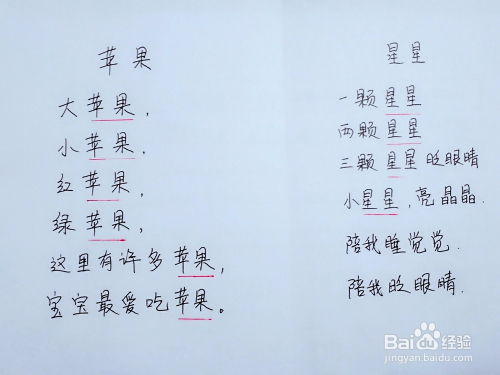 苹果
大苹果，
小苹果，
红苹果，
绿苹果，
这里有许多苹果，
宝宝最爱吃苹果。
星星
一颗星星
两颗星星
三颗星星眨眼睛
小星星，亮晶晶．
陪我睡觉觉．
陪我眨眼睛．
Bai du 经验
jingyan.baidu.com